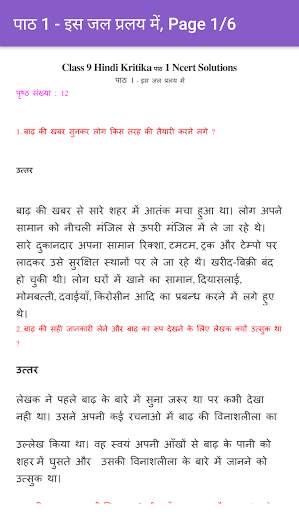 पाठ 1 - इस जल प्रलय में, Page 1/6
Class 9 Hindi Kritika पाठ 1 Ncert Solutions
पाठ 1 - इस जल प्रलय में
पृष्ठ संख्या : 12
1. बाढ़ की खबर सुनकर लोग किस तरह की तैयारी करने लगे ?
उत्तर
बाढ़ की खबर से सारे शहर में आतंक मचा हुआ था। लोग अपने
सामान को नीचली मंजिल से ऊपरी मंजिल में ले जा रहे थे।
सारे दुकानदार अपना सामान रिक्शा, टमटम, ट्रक और टेम्पो पर
लादकर उसे सुरक्षित स्थानों पर ले जा रहे थे। खरीद-बिक्री बंद
हो चुकी थी। लोग घरों में खाने का सामान, दियासलाई,
मोमबत्ती, दवाईयाँ, किरोसीन आदि का प्रबन्ध करने में लगे हुए
थे।
2. बाढ़ की सही जानकारी लेने और बाढ़ का रूप देखने के लिए लेखक क्यों उत्सुक था
?
उत्तर
लेखक ने पहले बाढ़ के बारे में सुना जरूर था पर कभी देखा
नही था। उसने अपनी कई रचनाओ में बाढ़ की विनाशलीला का
उल्लेख किया था। वह स्वयं अपनी आँखों से बाढ़ के पानी को
शहर में घुसते और उसकी विकाशलीला के बारे में जानने को
उत्सुक था।